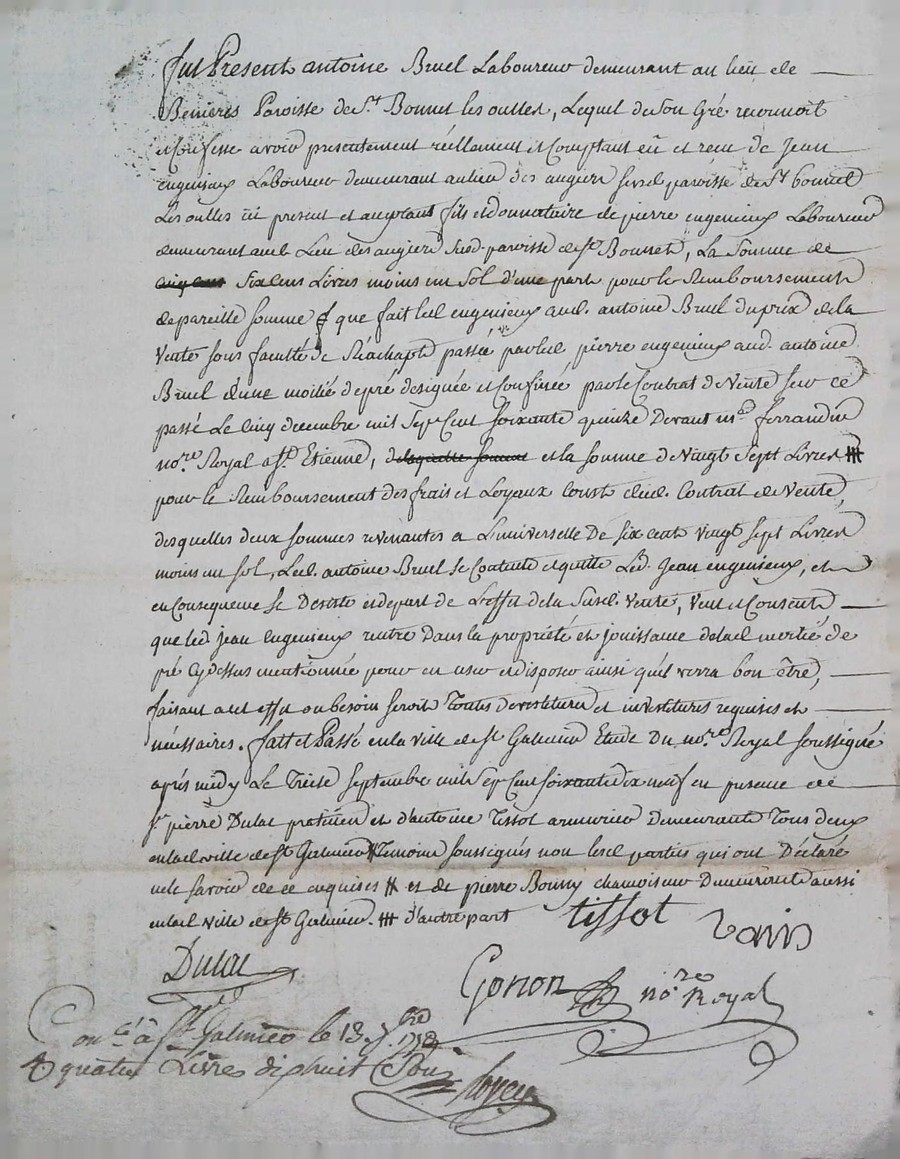 fut Present antoine Bruel Laboureur demeurant au lieu de
Paroisse de St Bonnet les oulles, Lequel de son Gré reconnoit
et Confesse avoir presentement réellement et Comptant eü et recu de Jean
engenieux Laboureur demeurant au lieu des augiers susd paroisse de St bonnet
Les oulles ici present et acceptant fils et donnataire de pierre engenieux Laboureur
demeurant aud Lieu des augiers susd. paroisse de St Bonnet, La Somme de
Six Cens Livres moins un Sol d'une part pour le Remboursement
de pareille somme que fait led engenieux aud. antoine Bruel du prix de la
Vente sous faculté de Réachapt passée par led pierre engenieux aud. antoine
Bruel d'une moitié de pré designée et Confinée par le Contrat de Vente sur ce
passé Le Cinq decembre mil Sept Cent soixante quinze Devant me ferrandin
nore Royal a St. Etienne, et la somme de Vingt Sept Livres ⧻
pour le Remboursement des frais et Loyaux Cousts dud. Contrat de Vente,
desquelles deux sommes revenantes a L'universelle De six cent vingt sept Livres
moins un sol, Led. antoine Bruel se Contente et quitte Led. Jean engenieux, et
en Consequence se Desiste et depart de L'effet de la Susd. Vente, Veut et Consent
que led Jean Engenieux rentre Dans la propriété et jouissance de lad moitié de
pré Cy dessus mentionnée pour en user et disposer ainsi qu'il verra bon être,
faisant a cet effet ou besoin seroit Toutes devestitures et investitures requises et
nécessaires. fait et Passé en la ville de St Galmier Etude Du nore Royal soussigné
après midy Le Treize Septembre mil Sept Cent soixante dix neuf en presence de
Sr pierre Dulac praticien et d'antoine Tissot armurier Demeurants Tous deux
en lad ville de St Galmier ⧺ Temoins soussignés non lesd parties qui ont Déclaré
ne le savoir de ce enquises ⧺ et de pierre Bonny chamoiseur Demeurant aussi
en lad ville de St Galmier. ⧻ d'autre part
tissot
Dulac
Gonon nore Royal
Con lé à St Galmier le 13. 7bre 1779
quatre Livres dix huit Sous